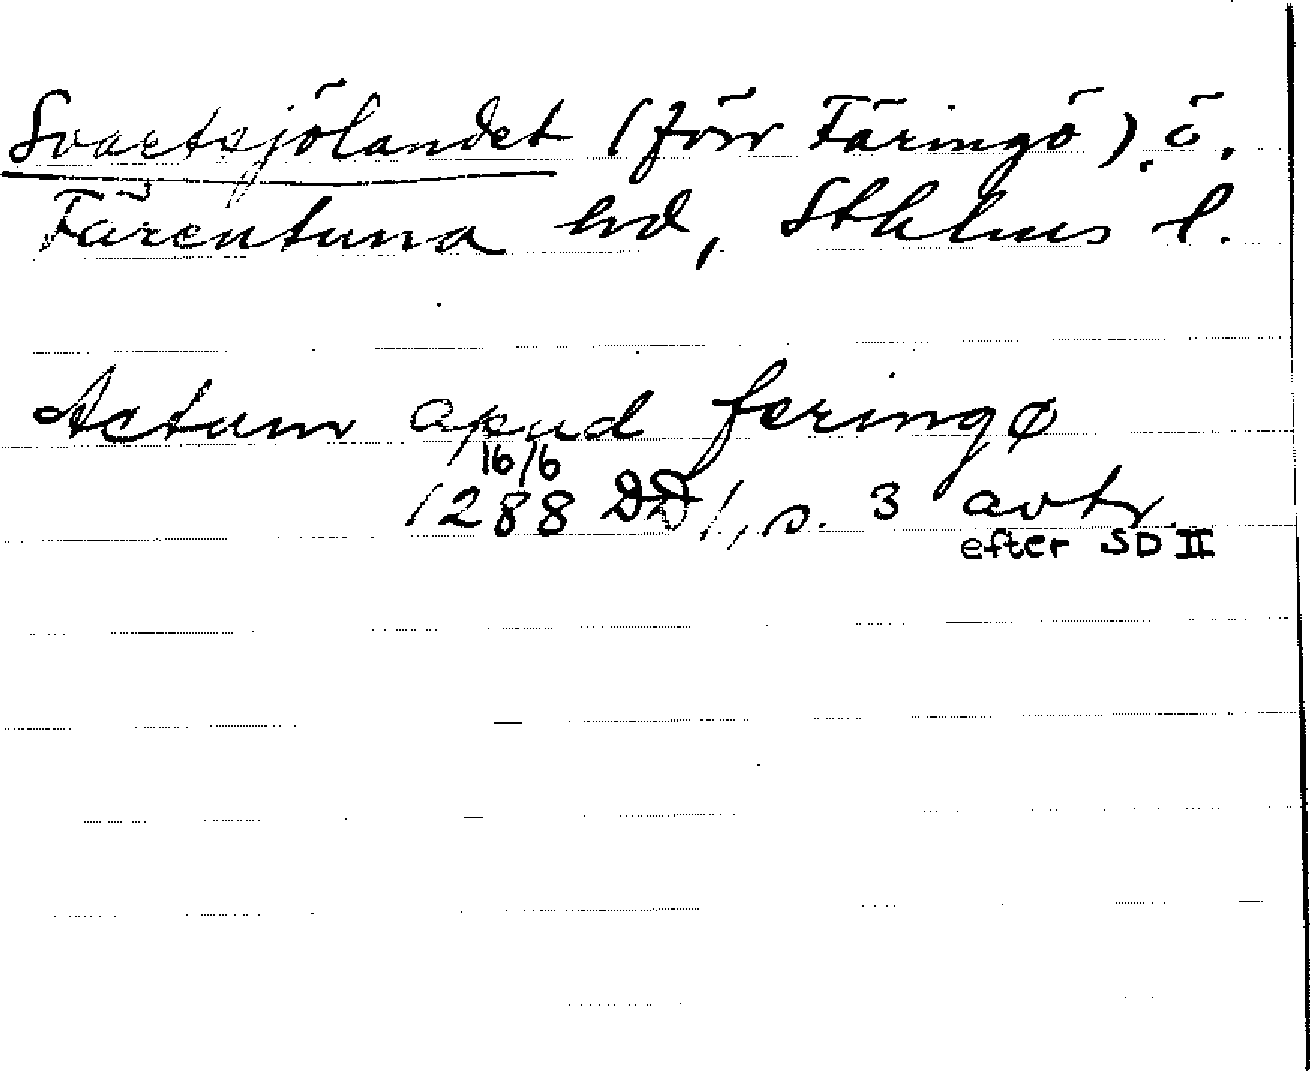 Svartsjölandet (förr Färingö), ö,
Färentuna hd, Sthlms l.
Actum apud feringø
16/6
1288 DD 1, s. 3 avtr
efter SD II